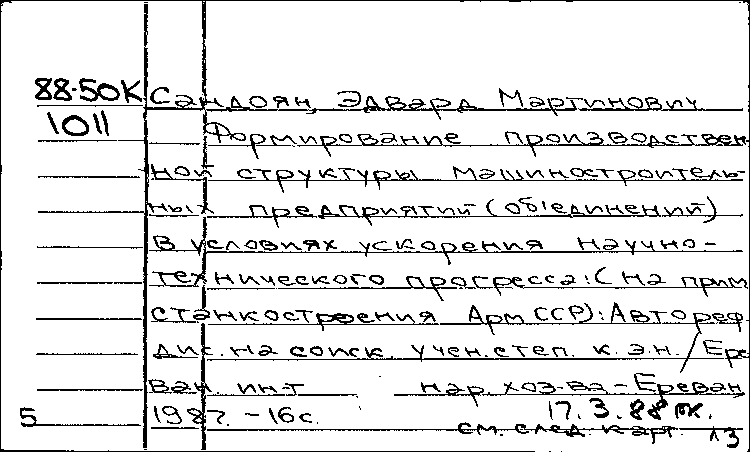 88-50К Сандоян, Эдвард Мартинович
1011 Формирование производствен
ной структуры машиностроитель-
ных предприятий (объединений)
в условиях ускорения научно-
технического прогресса: (на прим
станкостроения Арм.ССР): Автореф
дис. на соиск. учен. степ. к.э.н. / Ере
ван. ин-т нар. хоз-ва - Ереван,
5 1987. - 16 с. 17.3.88
см. след. карт.